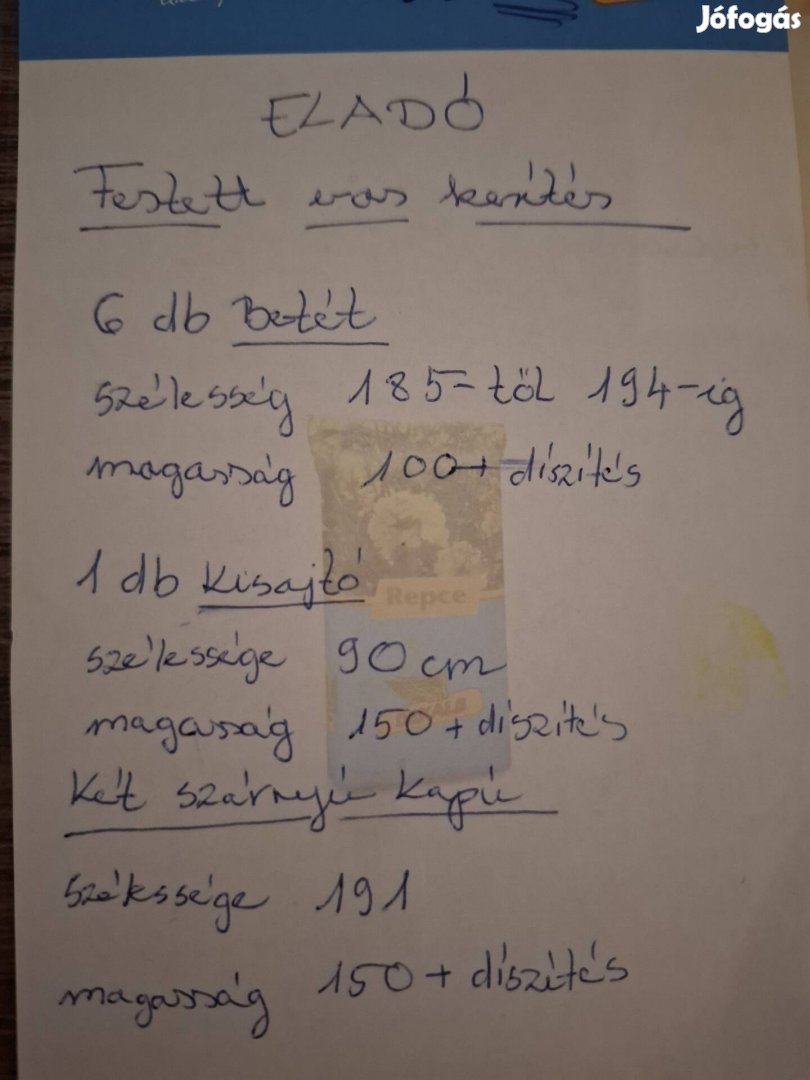 Jófogás
ELADÓ
Festett vas kerítés
6 db Betét
szélesség 185-től 194-ig
magasság 100+ díszítés
1 db Kisajtó
Repce
szélessége 90 cm
magasság 150 + díszítés
Két szárnyú Kapú
szélessége 191
magasság 150 + díszítés